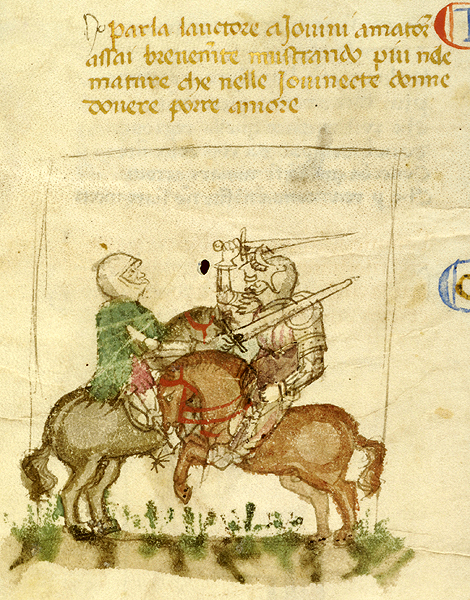 parla lauctore a Jouini amator̄
assai breuem̄te mustrando piu nele
mature che nelle Jouinecte donne
douere porre amore